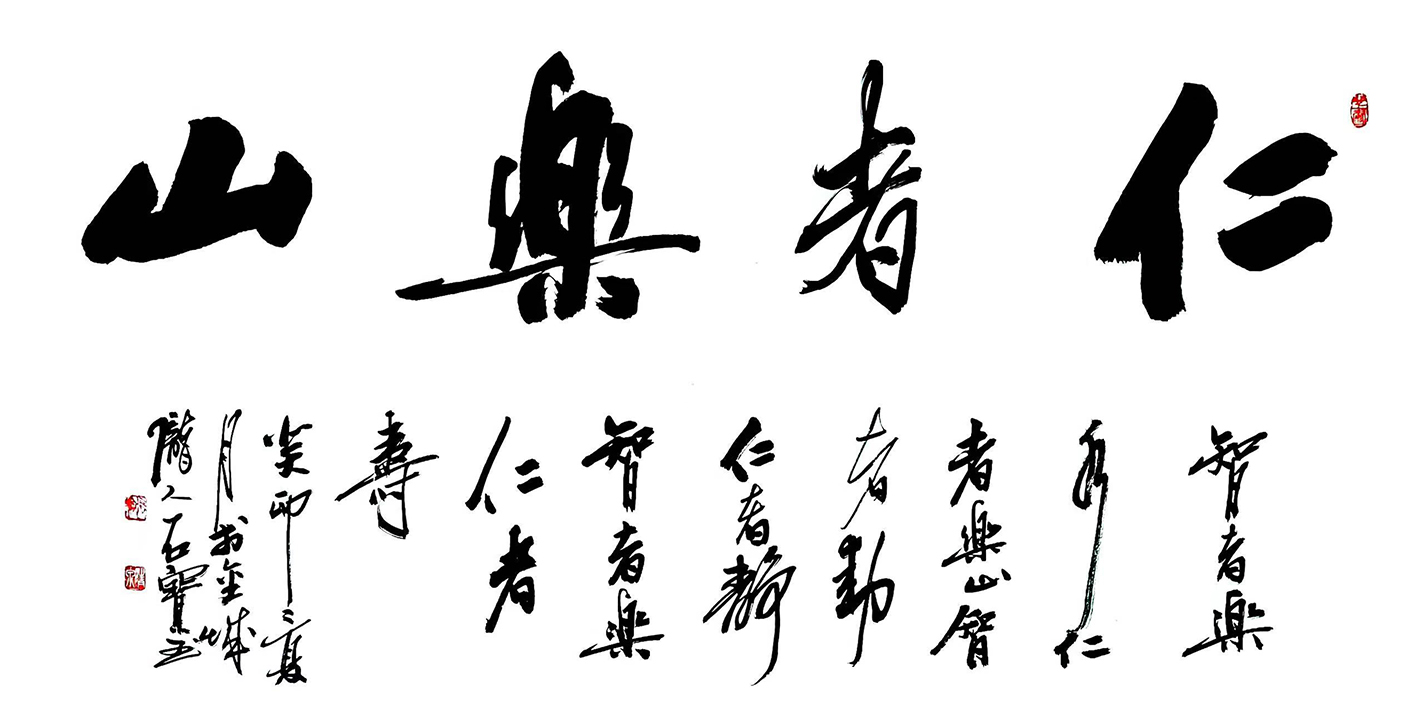 仁者樂山
智者樂
水仁
者樂山智
者動
仁者靜
智者樂
仁者
壽
癸卯之夏
月於金城
隴人石寶玉